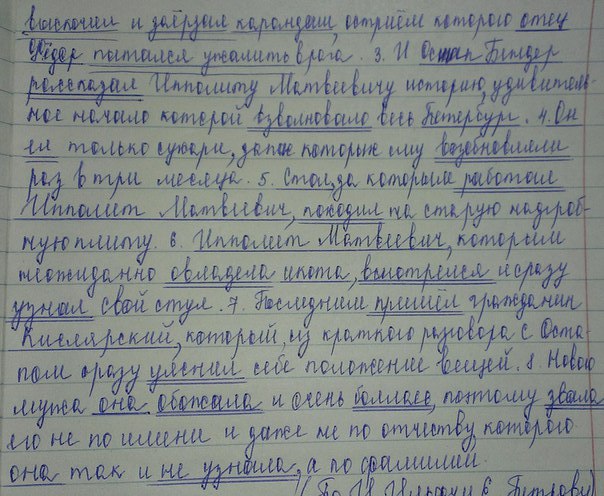 выскочил и заёрзал карандаш, остриём которого отец
Фёдор пытался ужалить врага. 3. И Остап Бендер
рассказал Ипполиту Матвеевичу историю, удивитель-
ное начало которой взволновало весь Петербург. 4. Он
ел только сухари, запас которых ему возобновляли
раз в три месяца. 5. Стол, за которым работал
Ипполит Матвеевич, походил на старую надгроб-
ную плиту. 6. Ипполит Матвеевич, которым
неожиданно овладела икота, всмотрелся и сразу
узнал свой стул. 7. Последним пришёл гражданин
Кислярский, который из краткого разговора с Оста-
пом сразу уяснил себе положение вещей. 8. Нового
мужа она обожала и очень боялась, поэтому звала
его не по имени и даже не по отчеству, которого
она так и не узнала, а по фамилии.
(По И. Ильфу и Е. Петрову)